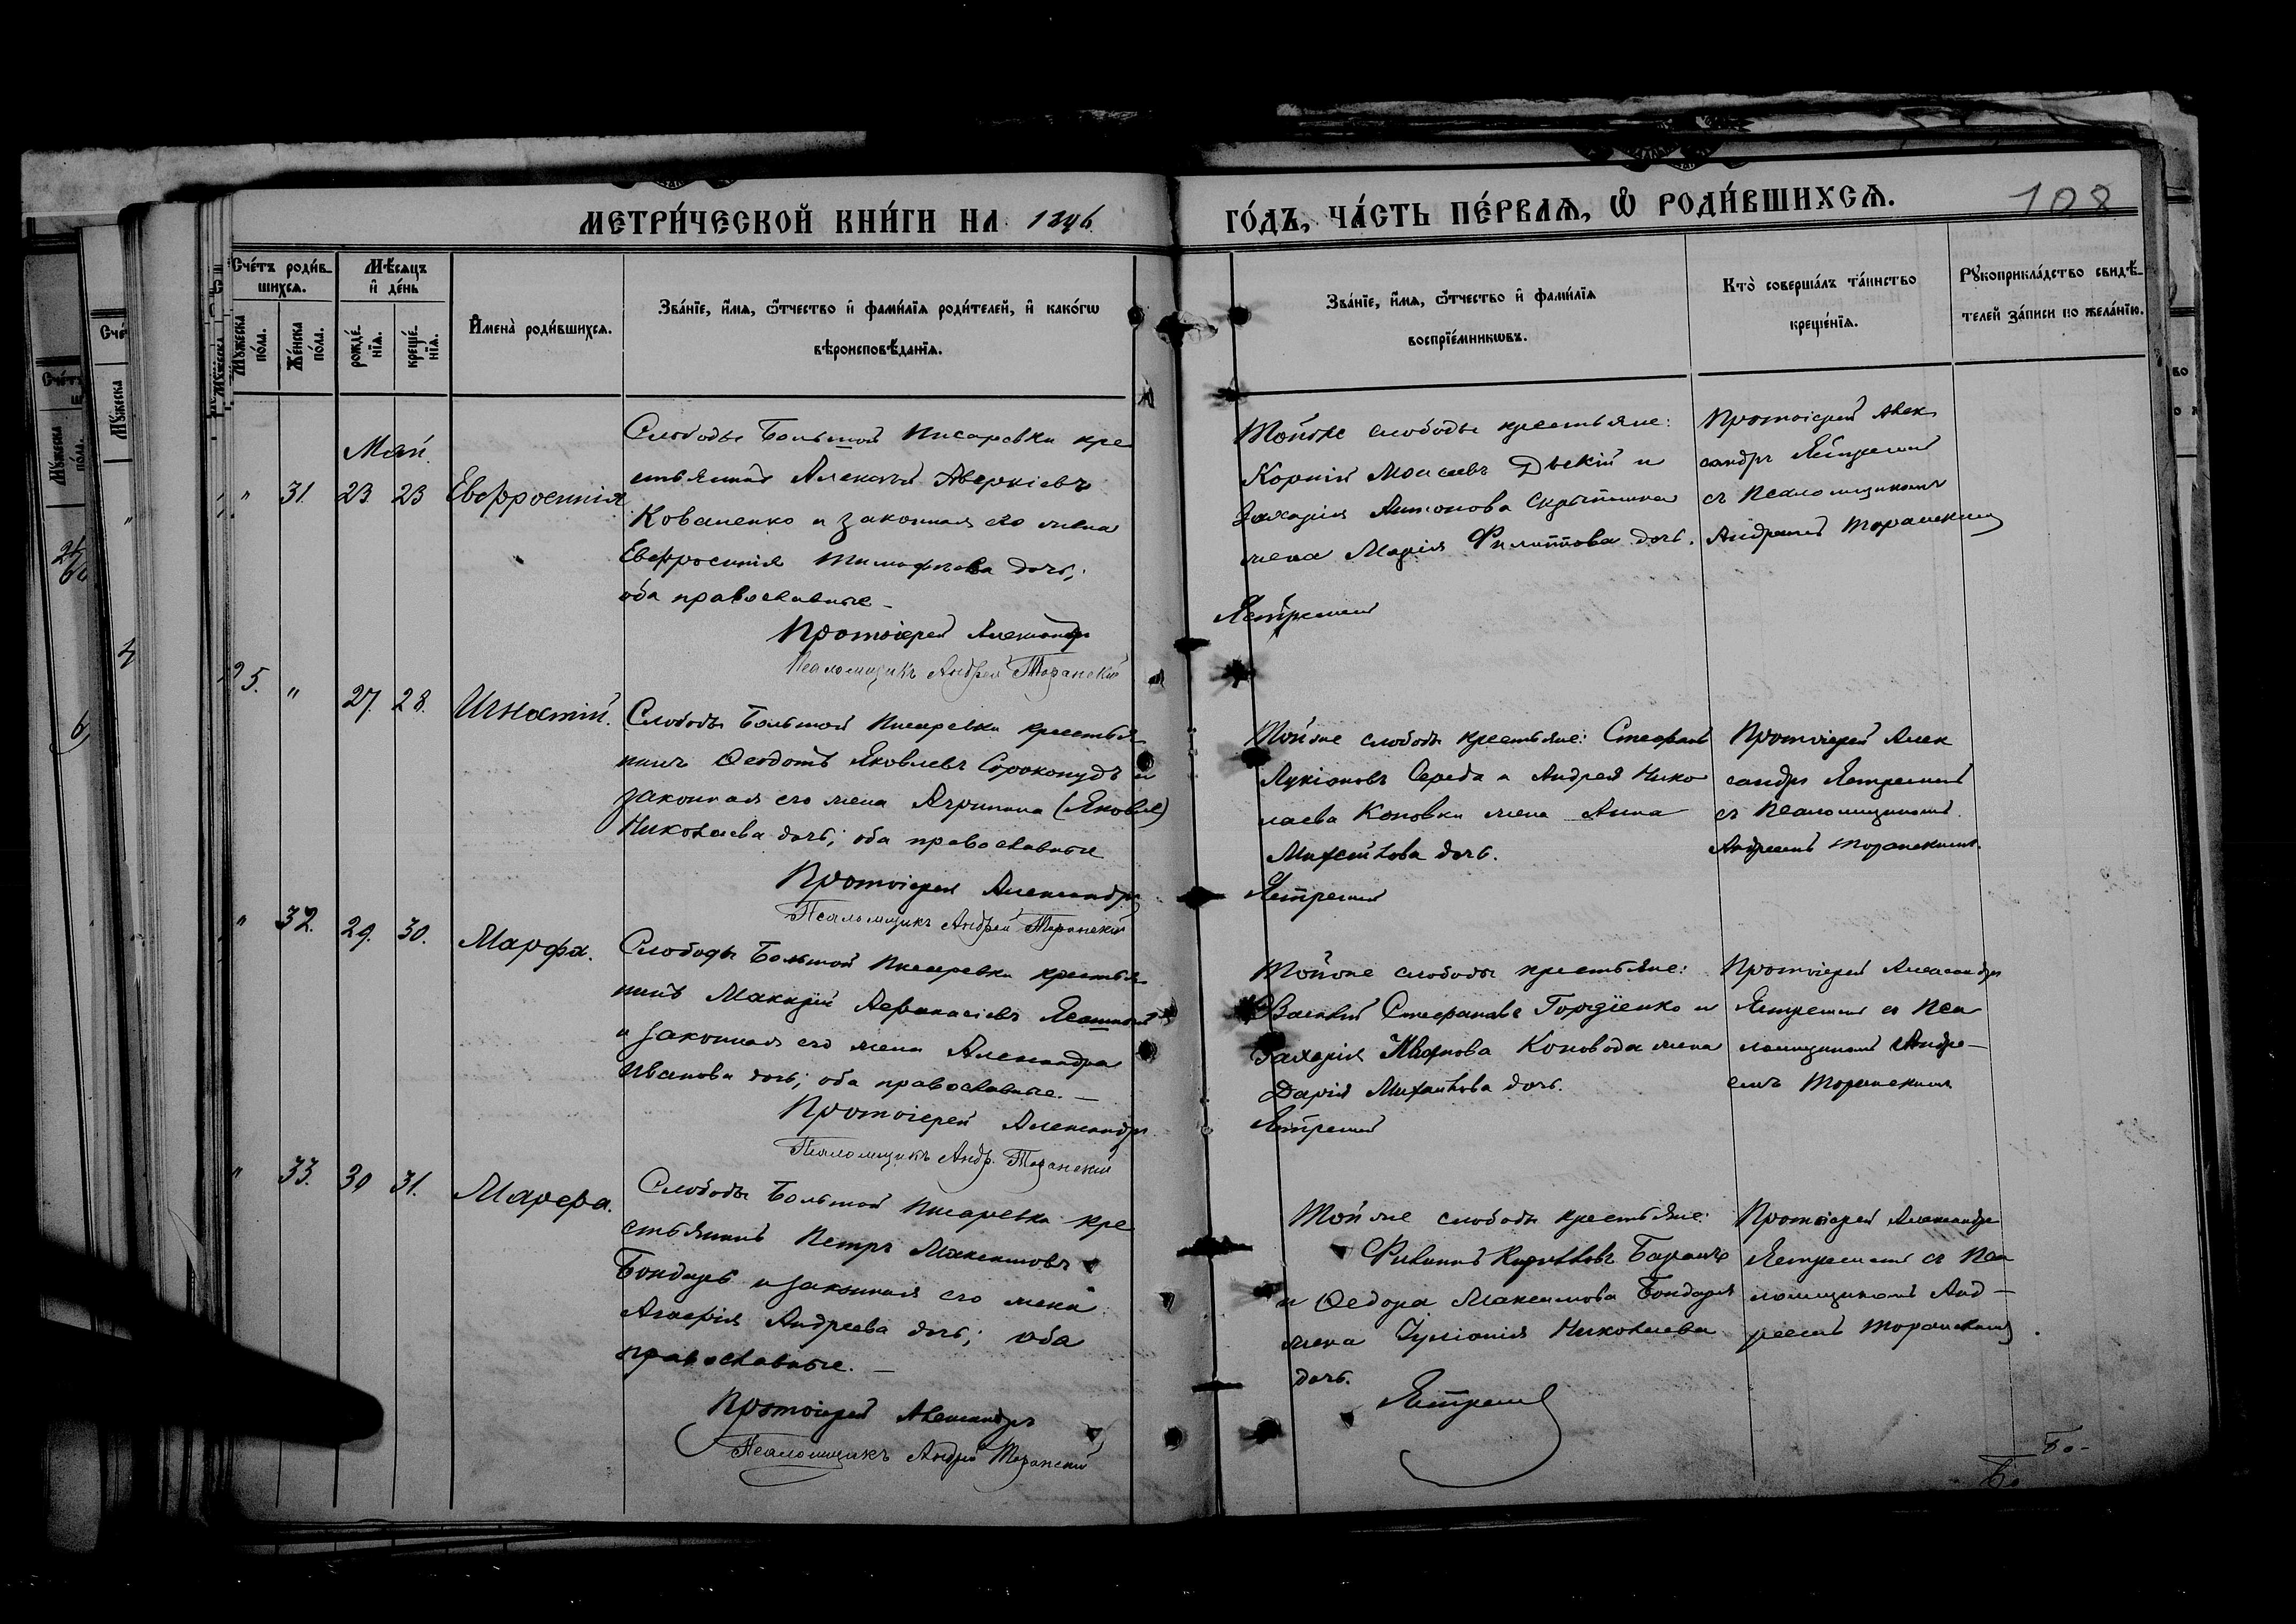 МЕТРИ́ЧЕСКОЙ КНИ́ГИ НА 1896
ГО́ДЪ, ЧА́СТЬ ПЕ́РВАЯ, Ѡ РОДИ́ВШИХСЯ.
108
Сче́тъ роди́в-
шихся.
Мѣ́сяцъ
и де́нь
Мꙋ́жеска
по́ла.
Же́нска
по́ла.
рожде́-
нія.
креще́-
нія.
Имена̀ роди́вшихся.
Зва́нїе, и́мя, ѻ́тчество и фами́лїя роди́телей, и како́гѡ
вѣроисповѣ́данїя.
Зва́нїе, и́мя, ѻ́тчество и фами́лїя
воспрїе́мникѡвъ.
Кто̀ соверша́лъ та́инство
креще́нїя.
Рꙋкоприкла́дство свидѣ́-
телей за́писи по жела́нїю.
Май.
" 31. 23 23 Евфросинія
Слободы Большой Писаревки кре
стьянинъ Алексѣй Аверкіевъ
Коваленко и законная его жена
Евфросинія Тимофеева дочь;
оба православные
Протоіерей Александръ
Псаломщикъ Андрей Торанскій
Тойже слободы крестьяне:
Корній Моисеевъ Дѣкій и
Захарія Антонова
жена Марія Филиппова дочь.
Ястремскій
Протоіерей Алек
сандръ
съ Псаломщикомъ
Андреемъ Торанскимъ
25. " 27. 28. Игнатій.
Слободы Большой Писаревки крестья
нинъ Ѳеодотъ Яковлевъ Сорокопудъ и
законная его жена Агрипина
Николаева дочь; оба православные
Протоіерей Александръ
Псаломщикъ Андрей Торанскій
Тойже слободы крестьяне: Стефанъ
Лукіановъ Середа и Андрея Нико
лаева Коновки жена Анна
Михайлова дочь.
Протоіерей Алек
сандръ
съ Псаломщикомъ
Андреемъ Торанскимъ.
" 32. 29. 30. Марфа.
Слободы Большой Писаревки крестья
нинъ Афанасіевъ
и законная его жена Александра
Иванова дочь; оба православные.
Протоіерей Александръ
Псаломщикъ Андр. Торанскій
Тойже слободы крестьяне:
Василій Стефановъ Гордіенко и
Захарія Коновода жена
Дарія Михайлова дочь.
Протоіерей Александръ
съ Пса
ломщикомъ Андре-
емъ Торанскимъ
" 33. 30 31. Марфа.
Слободы Большой Писаревки кре
стьянинъ Петръ Максимовъ
Бондарь и законная его жена
Агафія Андреева дочь; оба
православные.
Протоіерей Александръ
Псаломщикъ Андрей Торанскій
Тойже слободы крестьяне:
Филиппъ Кирилловъ
и Ѳедора Максимова Бондаря
жена Іуліанія Николаева
дочь.
Протоіерей Александръ
съ Пса
ломщикомъ Анд-
реемъ Торанскимъ